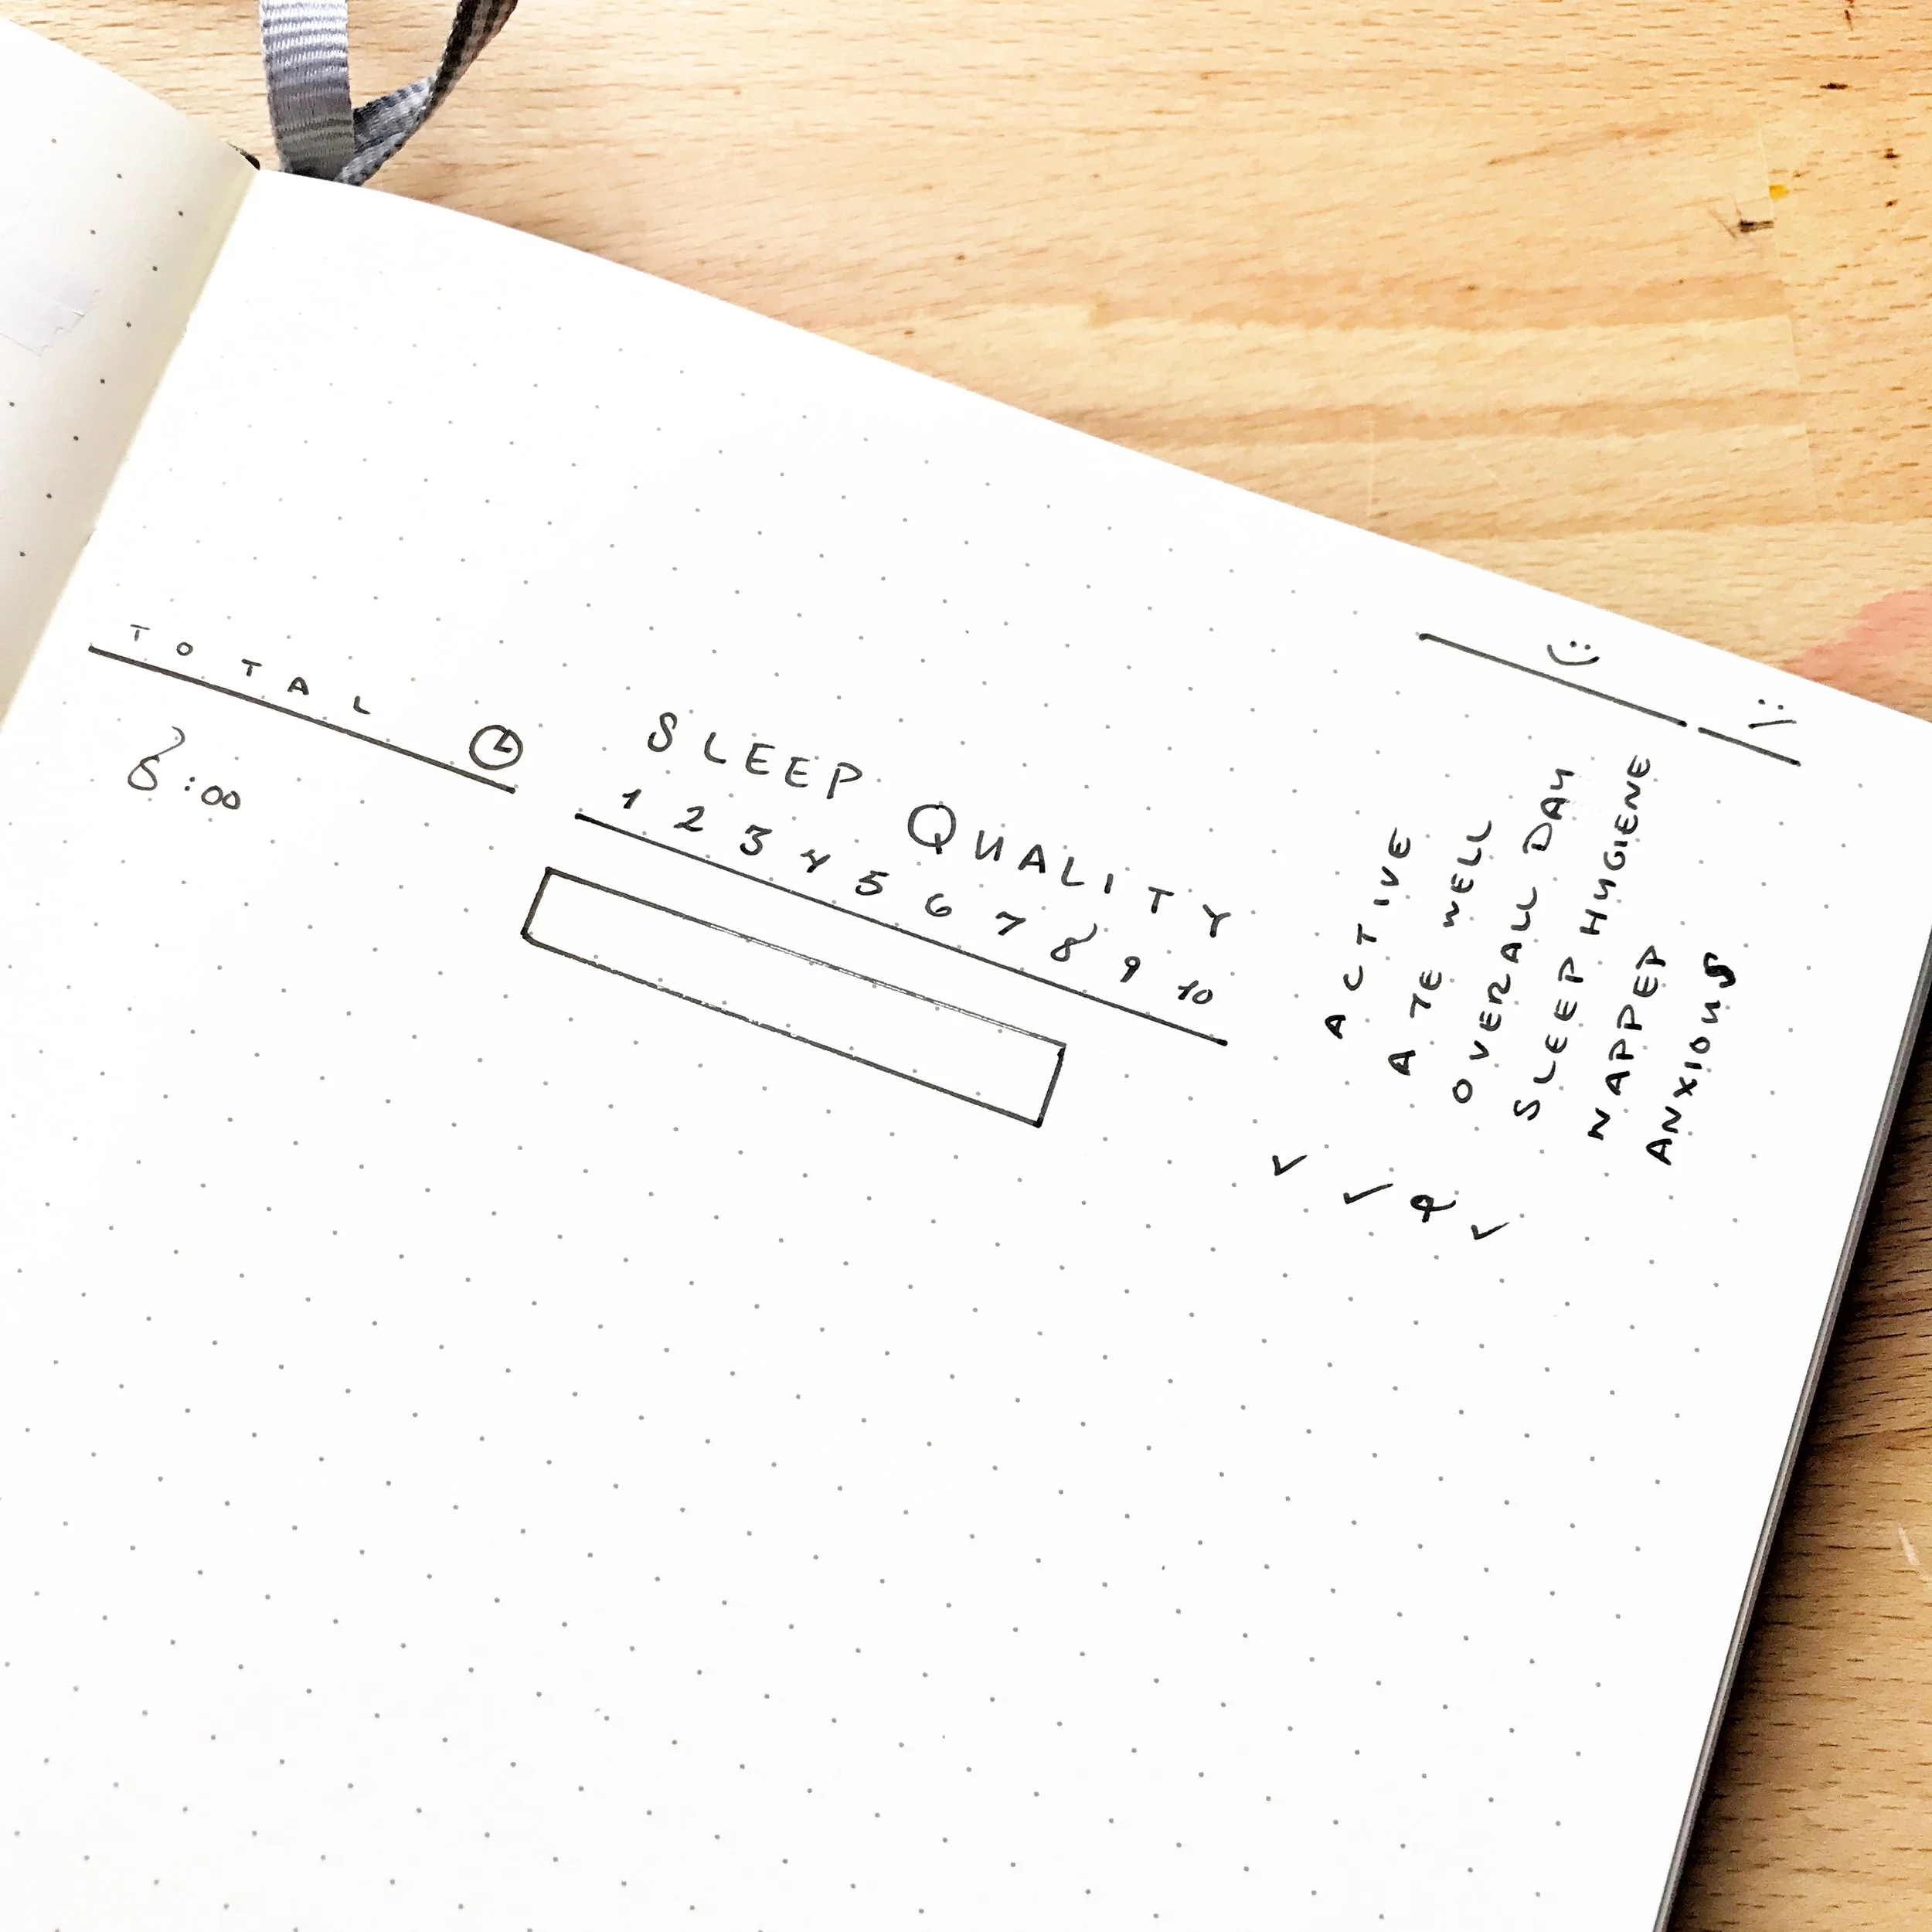 TOTAL
8:00
SLEEP QUALITY
1 2 3 4 5 6 7 8 9 10
:)
:/
ACTIVE
ATE WELL
OVERALL DAY
SLEEP HYGIENE
NAPPED
ANXIOUS
✓ ✓ ✓